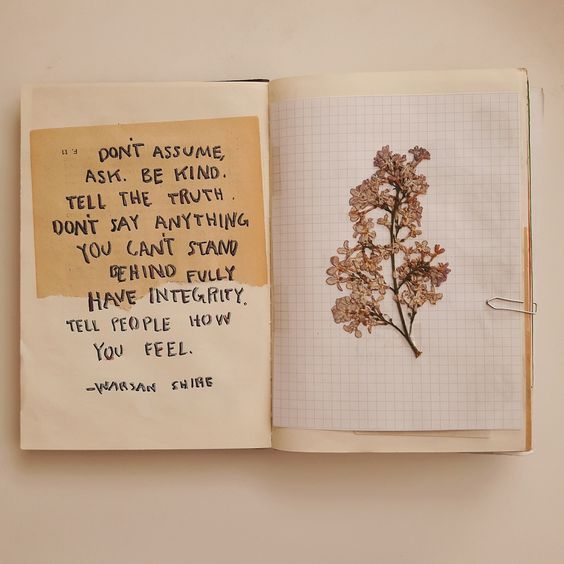 DON'T ASSUME,
ASK. BE KIND.
TELL THE TRUTH.
DON'T SAY ANYTHING
YOU CAN'T STAND
BEHIND FULLY
HAVE INTEGRITY.
TELL PEOPLE HOW
YOU FEEL.
-WARSAN SHIRE